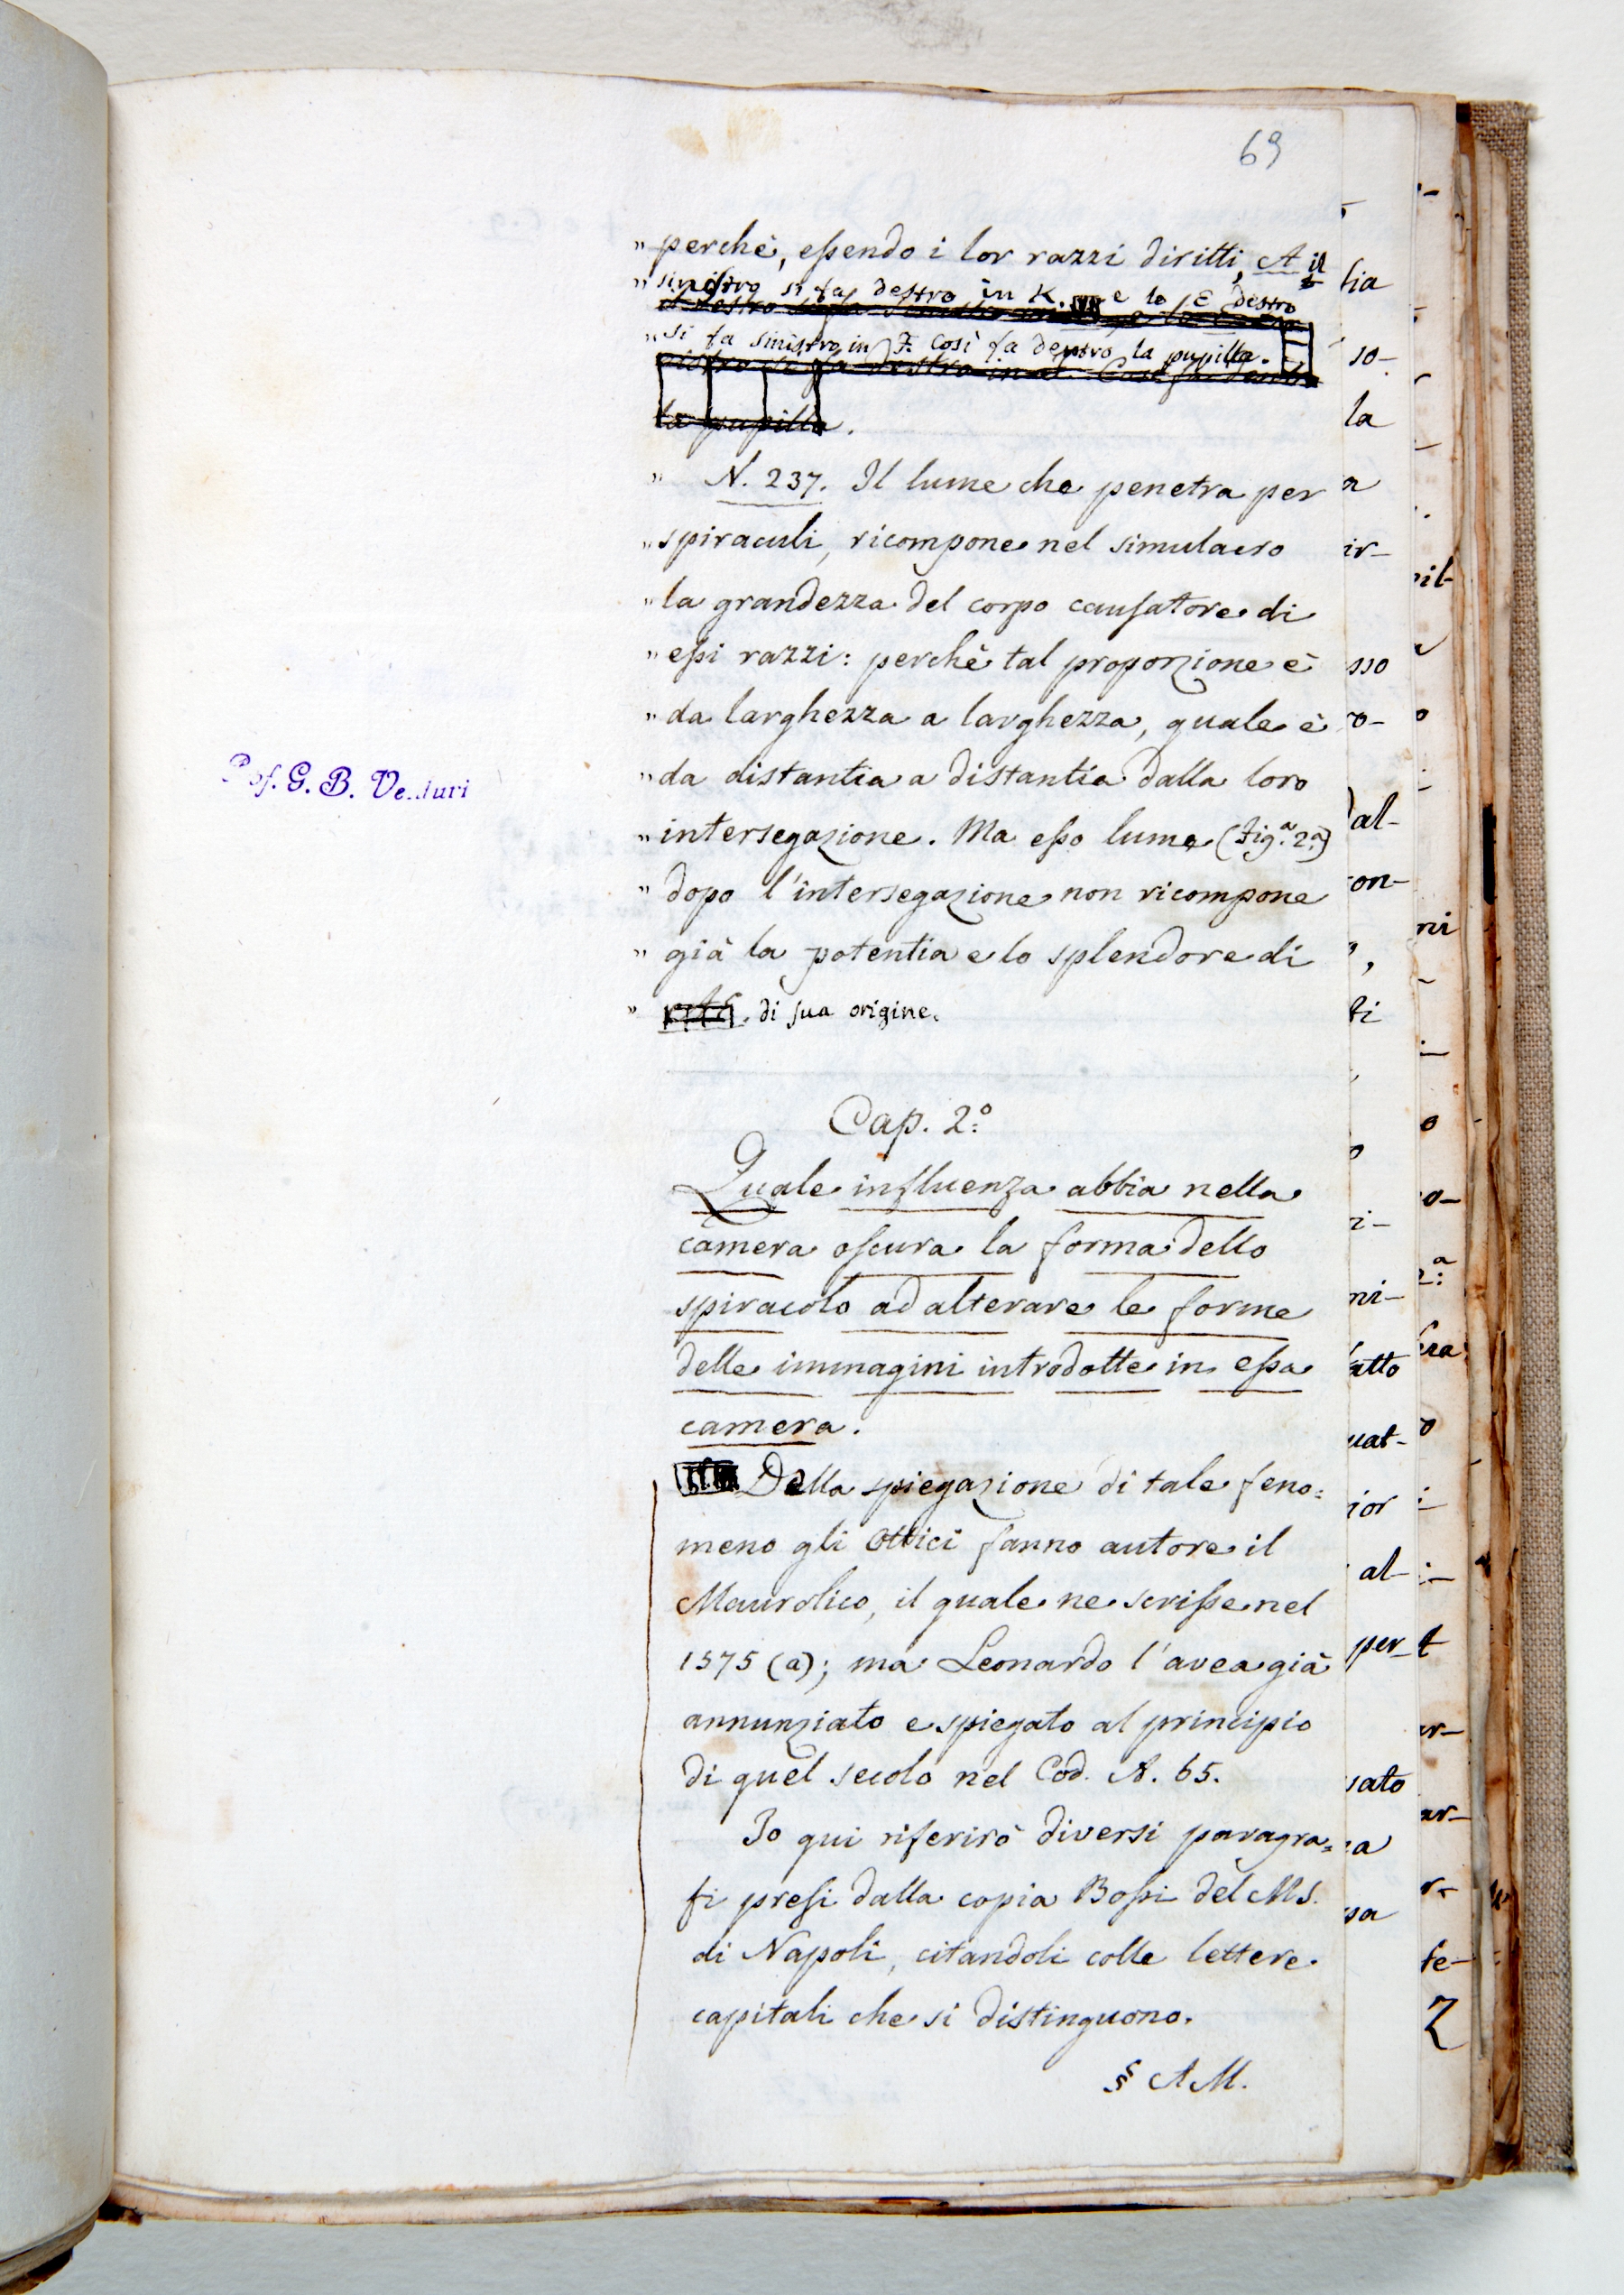 69
" perchè, eſsendo i lor razzi diritti, A il
" sinistro si fa destro in K. e lo E destro
" si fa sinistro in F. Così fa dentro la pupilla.
la pupilla.
" N. 237. Il lume che penetra per
" spiraculi, ricompone nel simulacro
" la grandezza del corpo cauſatore di
" eſsi razzi: perchè tal proporzione è
" da larghezza a larghezza, quale è
" da distantia a distantia dalla loro
" intersegazione. Ma eſso lume (Fig.ª 2.ª)
" dopo l'intersegazione non ricompone
" già la potentia e lo splendore di
" di ſua origine.
Prof. G. B. Venturi
Cap. 2.º
Quale influenza abbia nella
camera oſcura la forma dello
spiracolo ad alterare le forme
delle immagini introdotte in eſsa
camera.
Della spiegazione di tale feno=
meno gli Ottici fanno autore il
Maurolico, il quale ne scriſse nel
1575 (a); ma Leonardo l'avea già
annunziato e spiegato al principio
di quel secolo nel Cod. A. 65.
Io qui riferirò diversi paragra=
fi preſi dalla copia Boſsi del MS.
di Napoli, citandoli colle lettere
capitali che si distinguono.
§ AM.